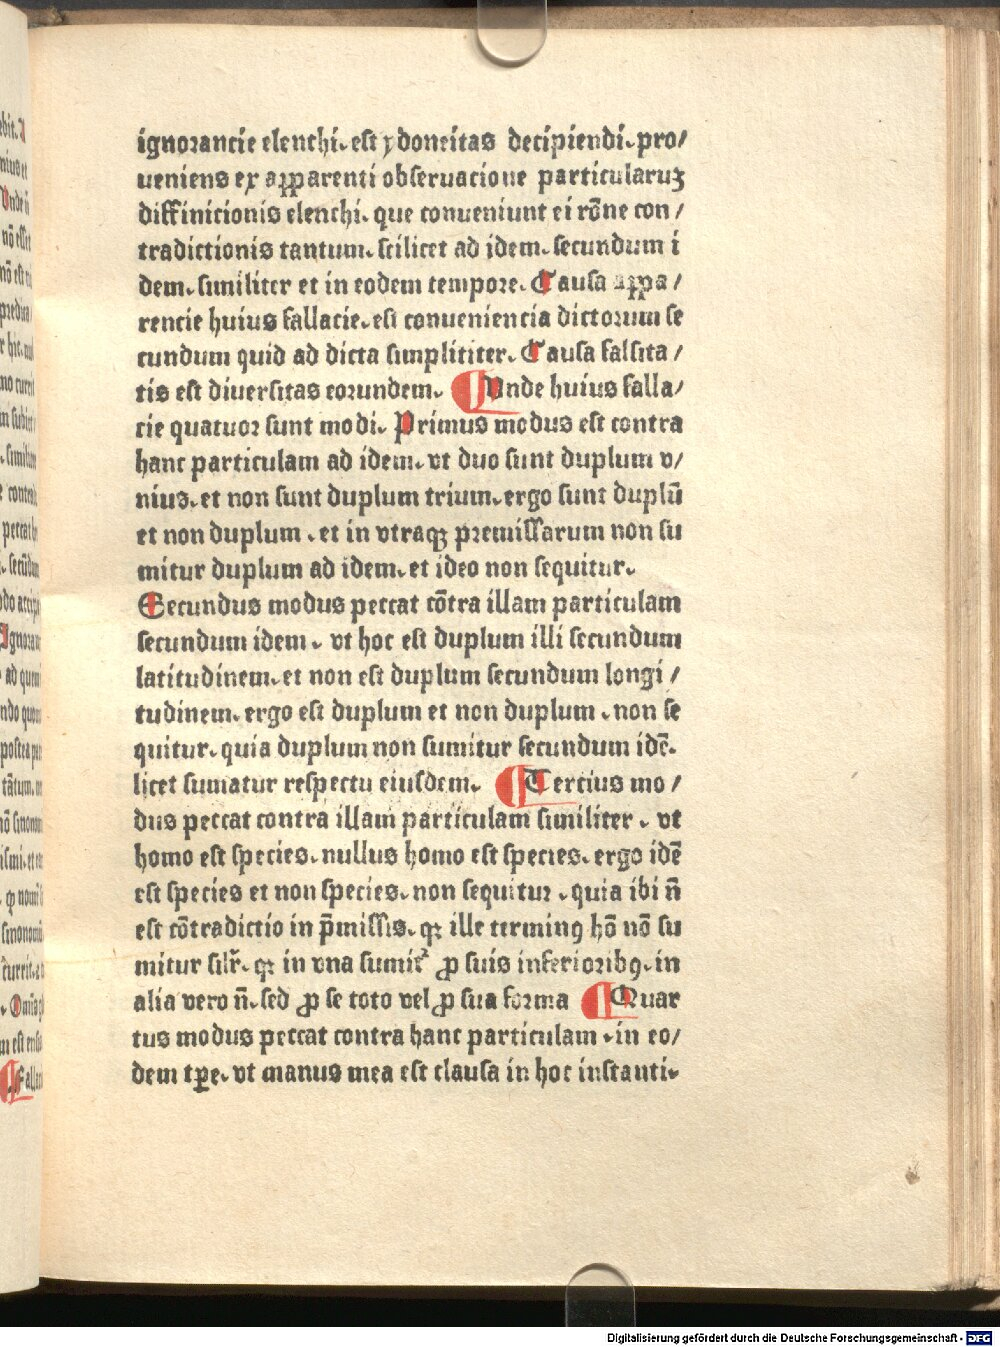 ignorancie elenchi. est ydoneitas decipiendi. pro/
ueniens ex apparenti obseruacione particularuꝫ
diffinicionis elenchi. que conueniunt ei rōne con/
tradictionis tantum. scilicet ad idem. secundum i
dem. similiter et in eodem tempore. Causa appa/
rencie huius fallacie. est conueniencia dictorum se
cundum quid ad dicta simpliciter. Causa falsita/
tis est diuersitas eorundem. Unde huius falla/
cie quatuor sunt modi. Primus modus est contra
hanc particulam ad idem. vt duo sunt duplum v/
nius. et non sunt duplum trium. ergo sunt duplū
et non duplum. et in vtraqꝫ premissarum non su
mitur duplum ad idem. et ideo non sequitur.
Secundus modus peccat cōtra illam particulam
secundum idem. vt hoc est duplum illi secundum
latitudinem. et non est duplum secundum longi/
tudinem. ergo est duplum et non duplum. non se
quitur. quia duplum non sumitur secundum idē.
licet sumatur respectu eiusdem. Tercius mo/
dus peccat contra illam particulam similiter. vt
homo est species. nullus homo est species. ergo idē
est species et non species. non sequitur. quia ibi n̄
est cōtradictio in p̄missis. qꝛ ille terminꝰ hō nō su
mitur silr̄. qꝛ in vna sumit᷑ ꝓ suis inferioribꝰ. in
alia vero n̄. sed ꝓ se toto vel ꝓ sua forma Quar
tus modus peccat contra hanc particulam. in eo/
dem tꝑe. vt manus mea est clausa in hoc instanti.
Digitalisierung gefördert durch die Deutsche Forschungsgemeinschaft - DFG